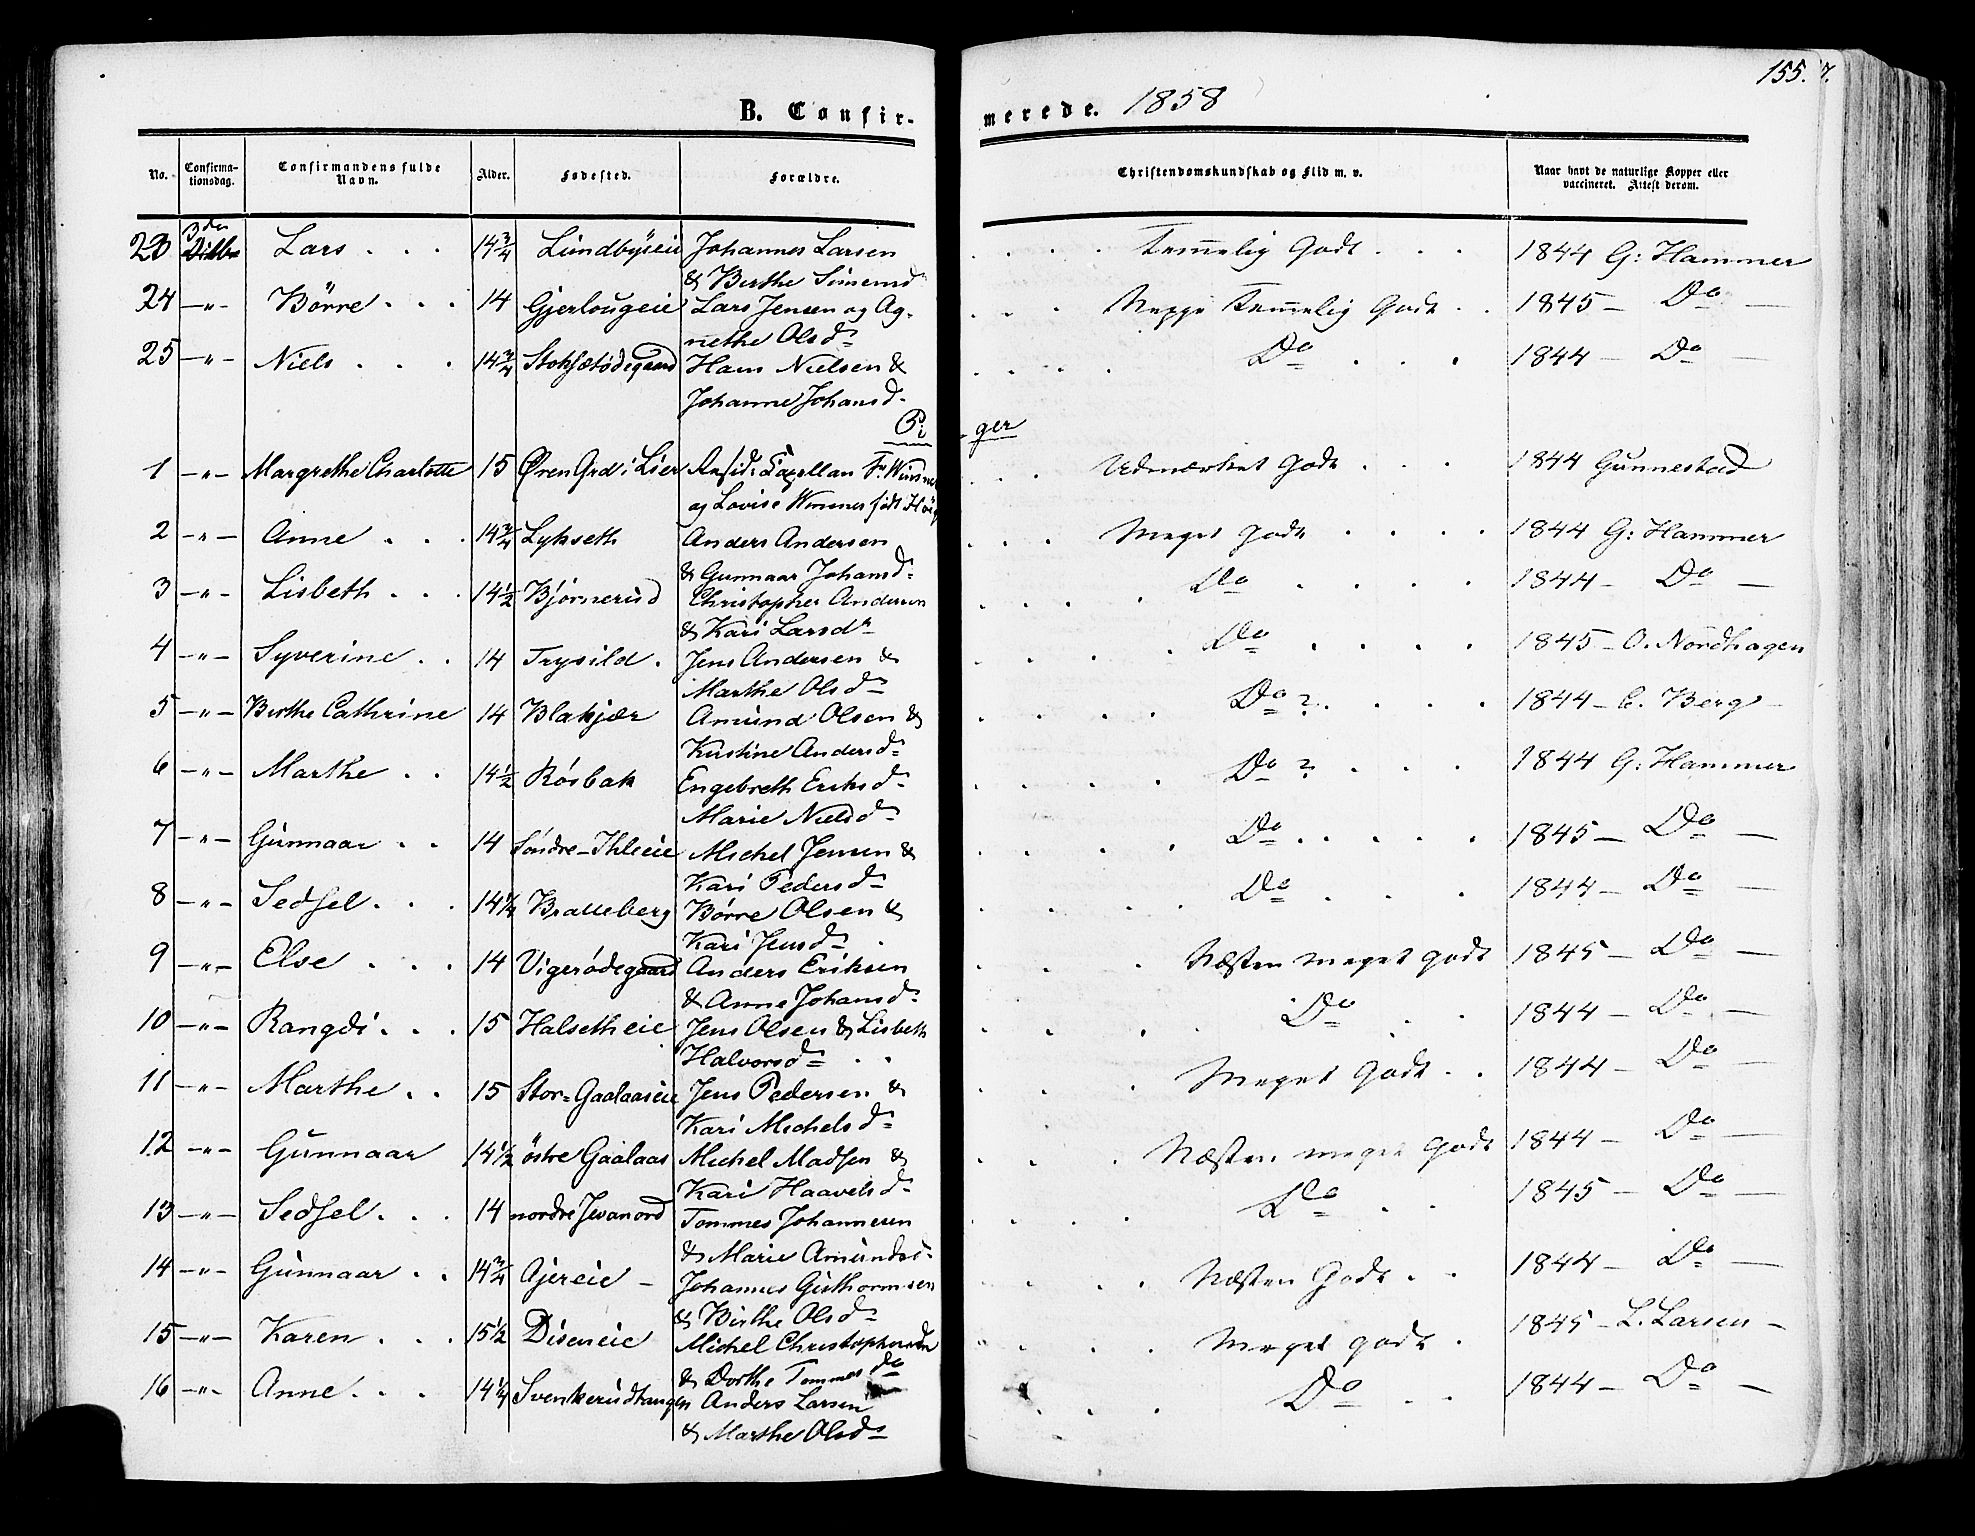 155.
B. Confir-
merede. 1858
No.
Confirma-
tionsdag.
Confirmandens fulde
Navn.
Alder.
Fødested.
Forældre.
Christendomskundskab og Flid m. v.
Naar havt de naturlige Kopper eller
vaccineret. Attest derom.
23 3die Lars . . . 14 3/4 Lundbyseie Johannes Larsen . . . . Temmelig Godt . . . 1844 G: Hammer
& Berthe Simensd
24 -"- Børre . . . 14 Gjerlougeie Lars Jensen og Ag- . . . Neppe Temmelig Godt . . 1845 - Do -
nethe Olsdr
25 -"- Niels . . . 14 3/4 Stoksetødegaard Hans Nielsen & . . . . Do . . . 1844 - Do -
Johanne Johansd.
Pi-
ger
1 -"- Margrethe Charlotte 15 Øren Grd i Lier Resid: Capellan Fr. . . . Udmærket Godt . . . 1844 Gunnestad
og Lovise Wimmer født
2 -"- Anne . . . 14 3/4 Lykseth Anders Andersen . . . Meget godt . . . . 1844 G: Hammer
& Gunnaar Johansd:
3 -"- Lisbeth . . . 14 1/2 Bjørnerud Christopher Andersen . . . . Do . . . . 1844 - Do -
& Kari Larsdr
4 -"- Syverine . . 14 Trysild . Jens Andersen & . . . . Do . . . . 1845 - O. Nordhagen
Marthe Olsdr
5 -"- Berthe Cathrine 14 Blakjær Amund Olsen & . . . . Do ? . . . . 1844 - C. Berg -
Kristine Andersd:
6 -"- Marthe . . 14 1/2 Røsbak Engebreth Eriksd: . . . . Do ? . . . 1844 G: Hammer
Marie Nielsd:
7 -"- Gunnaar . . 14 Søndre-Ihleeie Michel Jensen & . . . . Do . . . . . 1845 - Do -
Kari Pedersd:
8 -"- Sedsel . . . 14 1/4 Bratteberg Børre Olsen & . . . . Do . . . . 1844 - Do -
Kari Jensd: .
9 -"- Else . . . 14 Vigerødegaard Anders Eriksen . . . Næsten meget godt 1845 - Do -
& Anne Johansd:
10 -"- Rangdi . . . 15 Halsetheie Jens Olsen & Lisbeth . . . . Do . . 1844 - Do -
Halvorsd: . .
11 -"- Marthe . . 15 Stor-Gaalaaseie Jens Pedersen & . . . Meget Godt . . 1844 - Do -
Kari Michelsd:
12 -"- Gunnaar 14 1/2 östre Gaalaas Michel Madsen & . . . Næsten meget Godt 1844 - Do -
Kari Haavelsd:
13 -"- Sedsel . . . 14 nordre Jevanord Tommes Johannesen . . . . Do . . 1845 - Do -
& Marie Amundsd.
14 -"- Gunnaar . . 14 3/4 Ajereie - Johannes Guthormsen . . . . Næsten Godt . . 1844 - Do -
& Birthe Olsd:
15 -"- Karen . . . 15 1/2 Diseneie Michel Christophersen . . . . Meget godt . 1845 - L. Larsen -
& Dorthe Tommesd:
16 -"- Anne . . . 14 1/4 Svenkerudtangen Anders Larsen . . . Do . . 1844 - Do -
& Marthe Olsd: